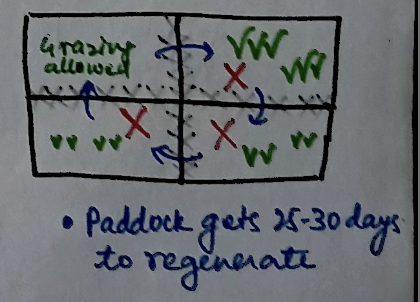 Grazing
allowed
• Paddock gets 25-30 days
to regenerate